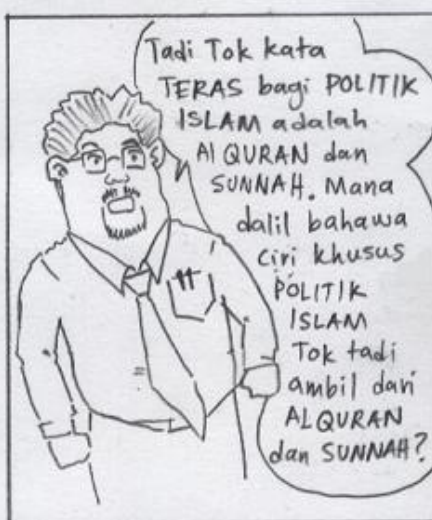 Tadi Tok kata
TERAS bagi POLITIK
ISLAM adalah
Al QURAN dan
SUNNAH. Mana
dalil bahawa
ciri khusus
POLITIK
ISLAM
Tok tadi
ambil dari
ALQURAN
dan SUNNAH?